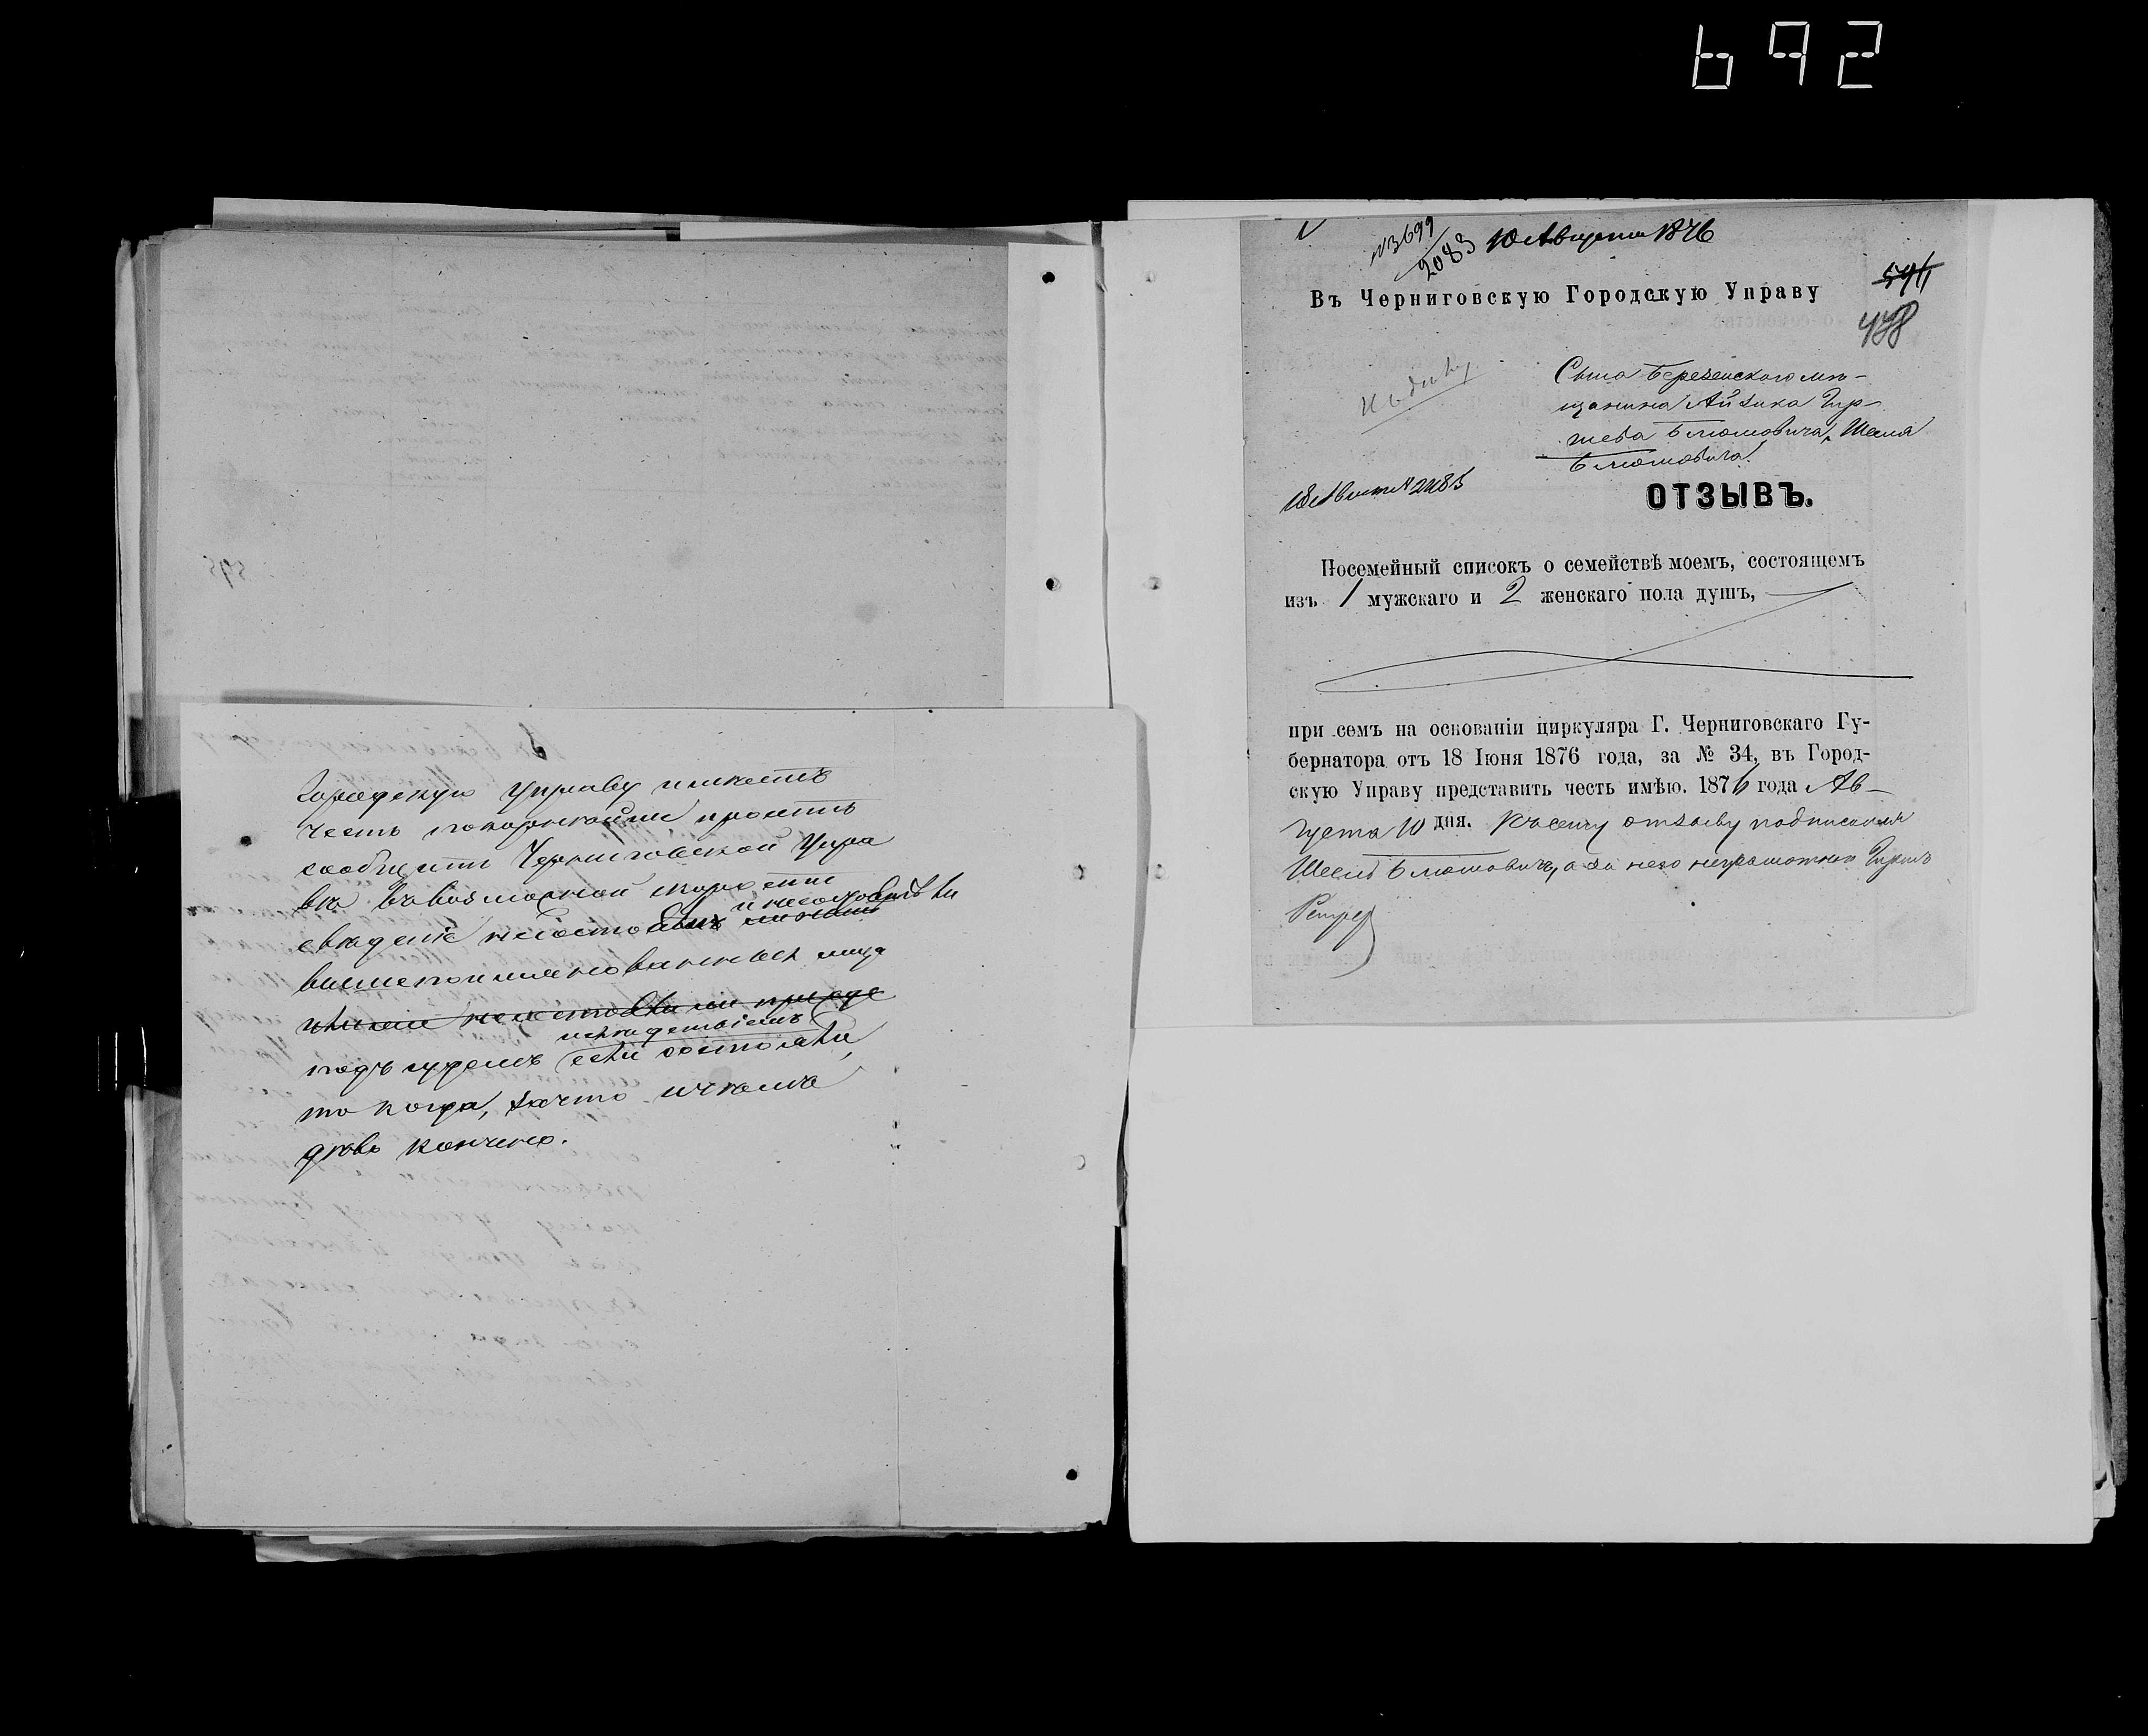 692
Городскую Управу имеетъ
честь покорнейше просить
сообщить Черниговской Упра
ве въ возможной скорости
и не состоятъ ли
сведение не состояли
вышепоименованныя лица
следствіемъ
подъ судомъ если состояли,
то когда, за что и чемъ
дело кончено.
№3699
2083
10 Августа 1876
Въ Черниговскую Городскую Управу
438
Къ делу
Сына Березенскаго мѣ-
щанина Айзика Гир-
шева Блюмовича, Шеля
Блюмовича.
10 Августа 2083
ОТЗЫВЪ.
Посемейный списокъ о семействѣ моемъ, состоящемъ
изъ 1 мужскаго и 2 женскаго пола душъ,
при семъ на основаніи циркуляра Г. Черниговскаго Гу-
бернатора отъ 18 Іюня 1876 года, за № 34, въ Город-
скую Управу представить честь имѣю. 1876 года Ав-
густа 10 дня. Къ сему отзыву подписался
а за него неграмотнаго